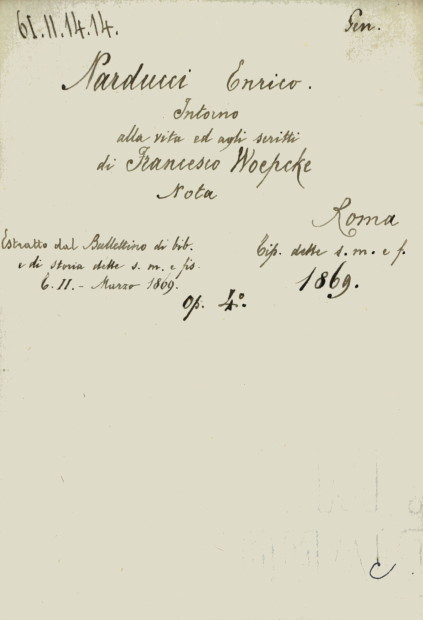 61.II.14.14.
Gen.
Narducci Enrico.
Intorno
alla vita ed agli scritti
di Francesco Woepcke
Nota
Roma
Estratto dal Bullettino di bib.
e di storia delle s. m. e fis.
T. II. - Marzo 1869.
Tip. delle s. m. e f.
1869.
op. 4º.
C